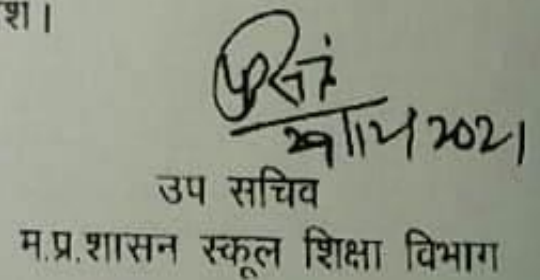 श।
2021
उप सचिव
म.प्र.शासन स्कूल शिक्षा विभाग